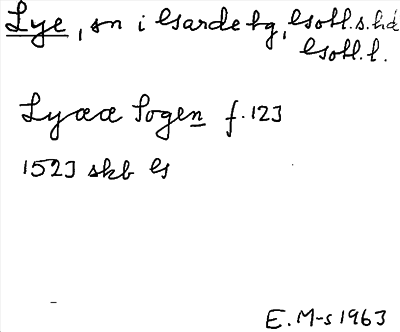 Lye, sn i Gärde tg, Gotl. s. hd
Gotl. l.
Lyææ Sogen f. 123
1523 skb G
E. M-s 1963